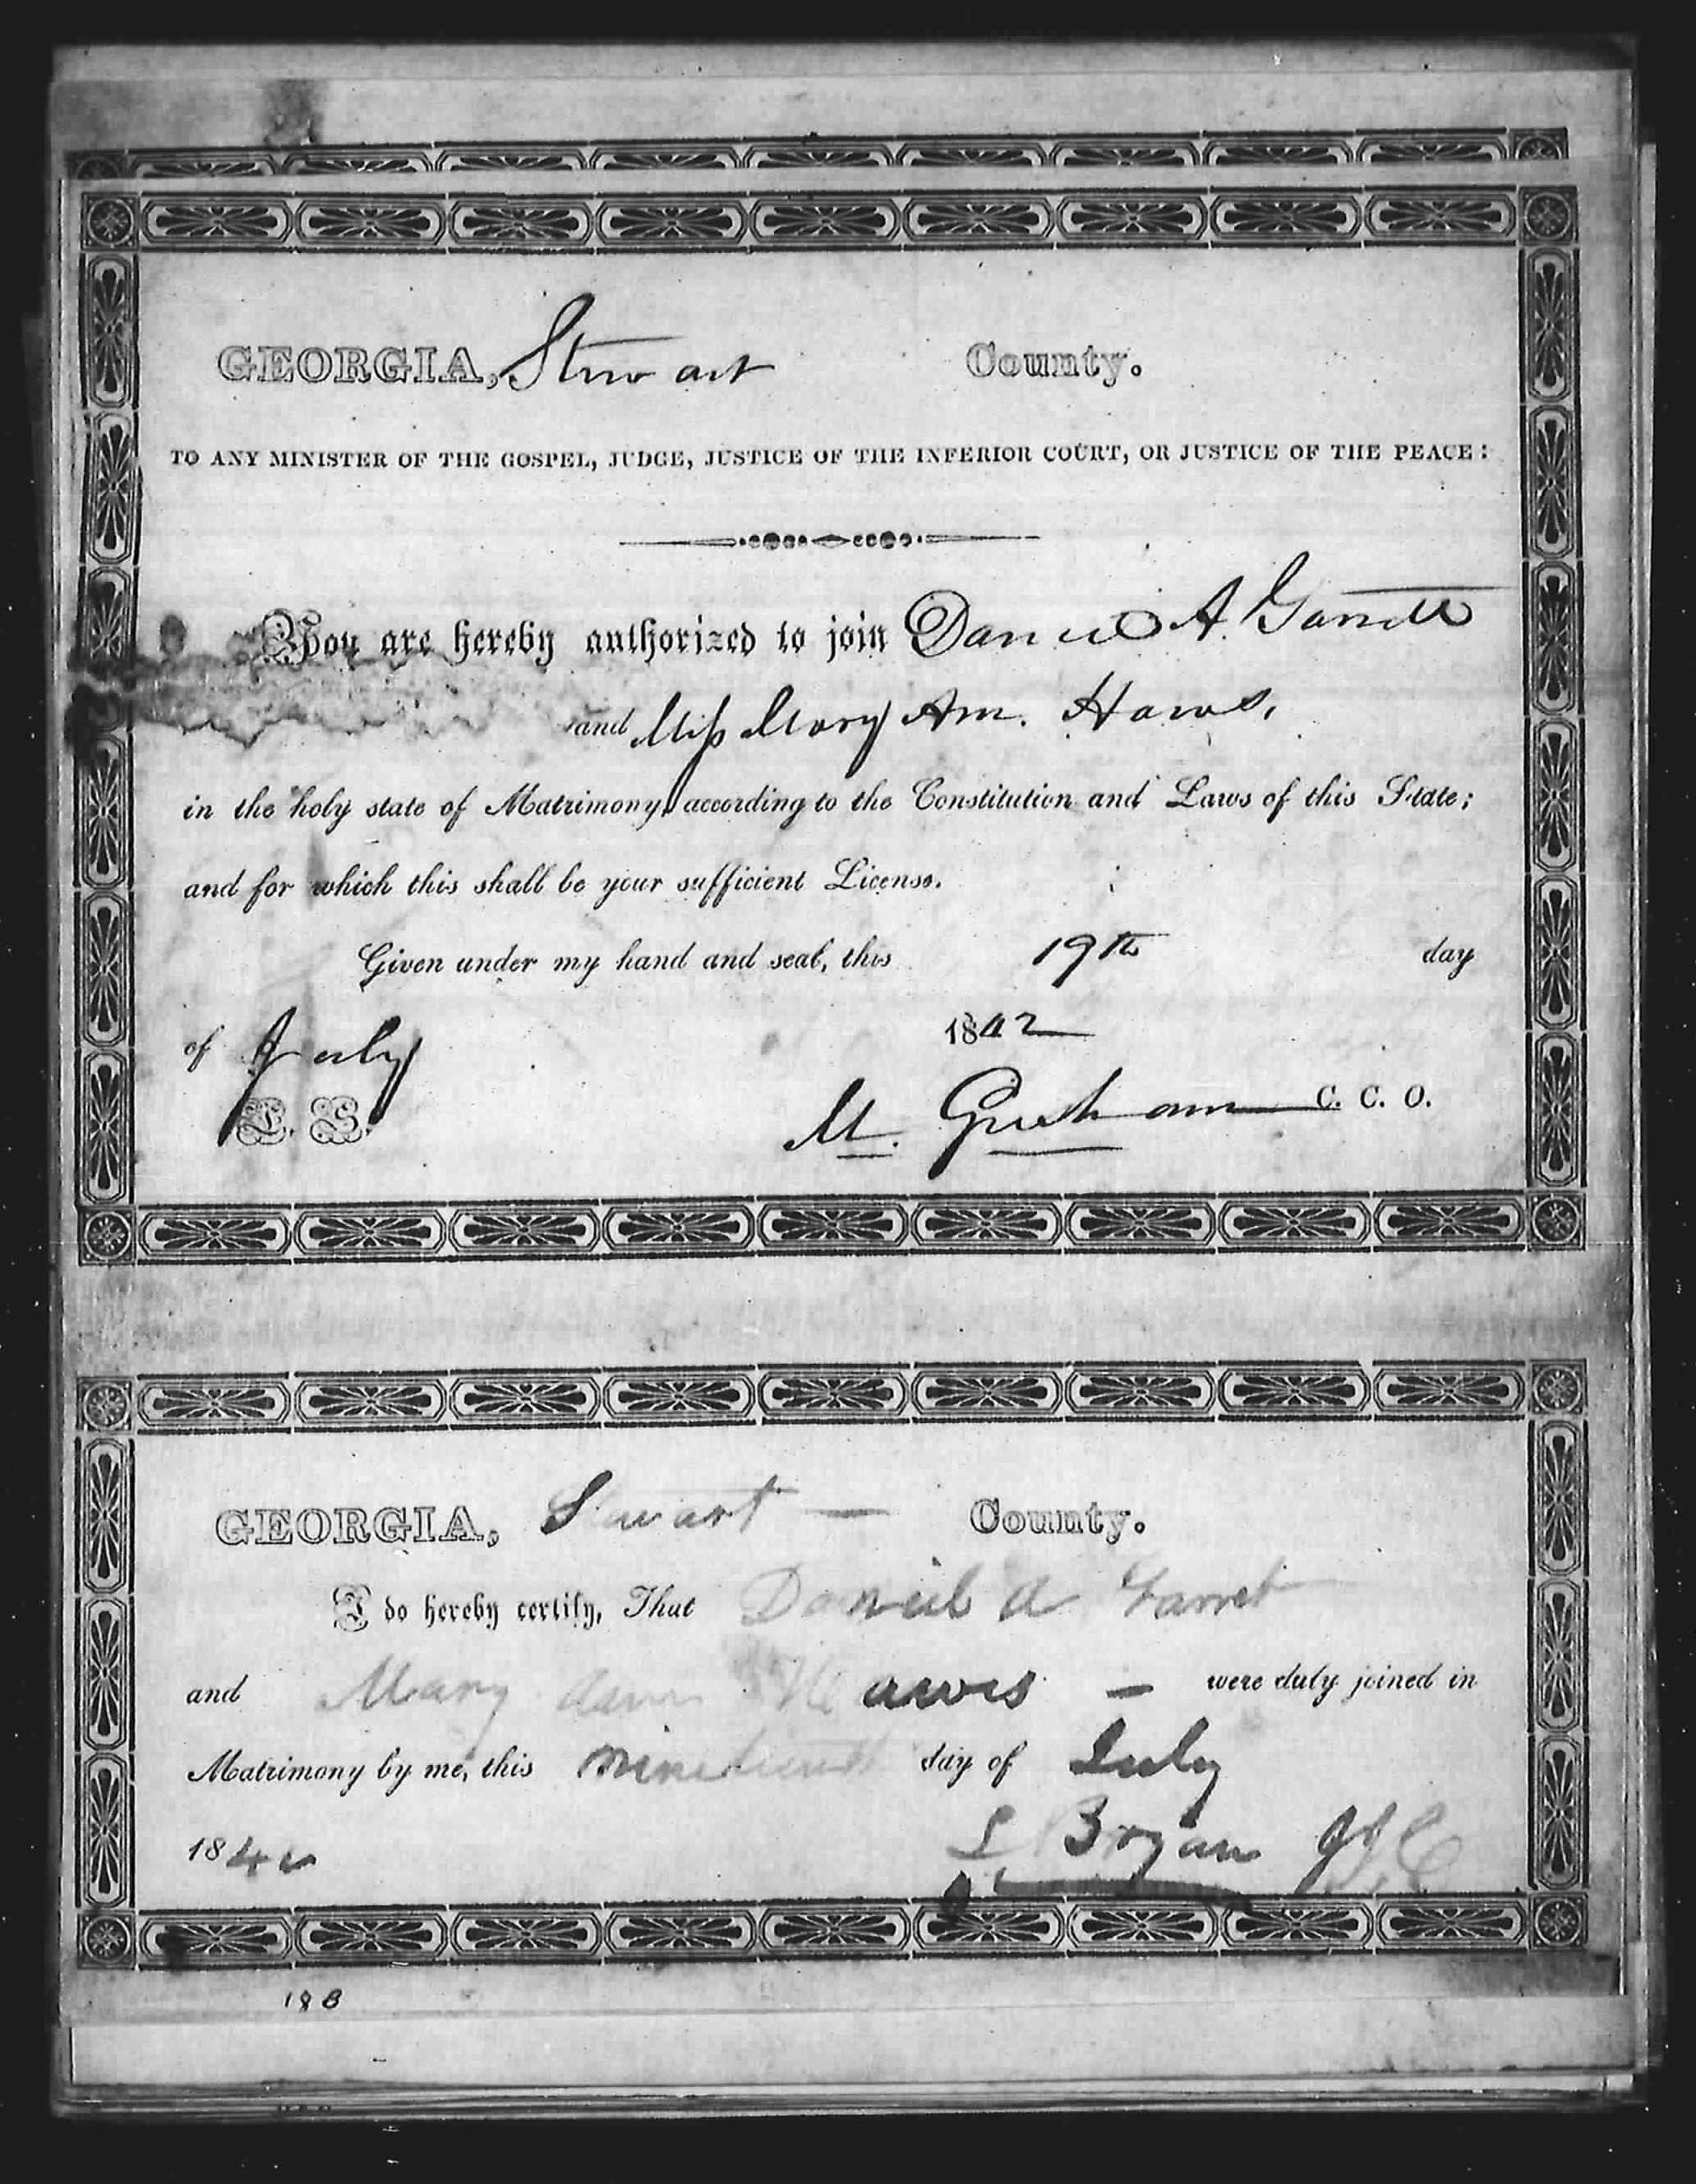 GEORGIA, Stewart County.
TO ANY MINISTER OF THE GOSPEL, JUDGE, JUSTICE OF THE INFERIOR COURT, OR JUSTICE OF THE PEACE:
You are hereby authorized to join Daniel A. Garrett
and Miss Mary Ann. Haws.
in the holy state of Matrimony, according to the Constitution and Laws of this State;
and for which this shall be your sufficient License.
Given under my hand and seal, this 19th day
of July 1842
L. S. M. Gresham C. C. O.
GEORGIA, Stewart County.
I do hereby certify, That Daniel A Garret
and Mary Ann Hawes were duly joined in
Matrimony by me, this nineteenth day of July
1842 L Bryan
188